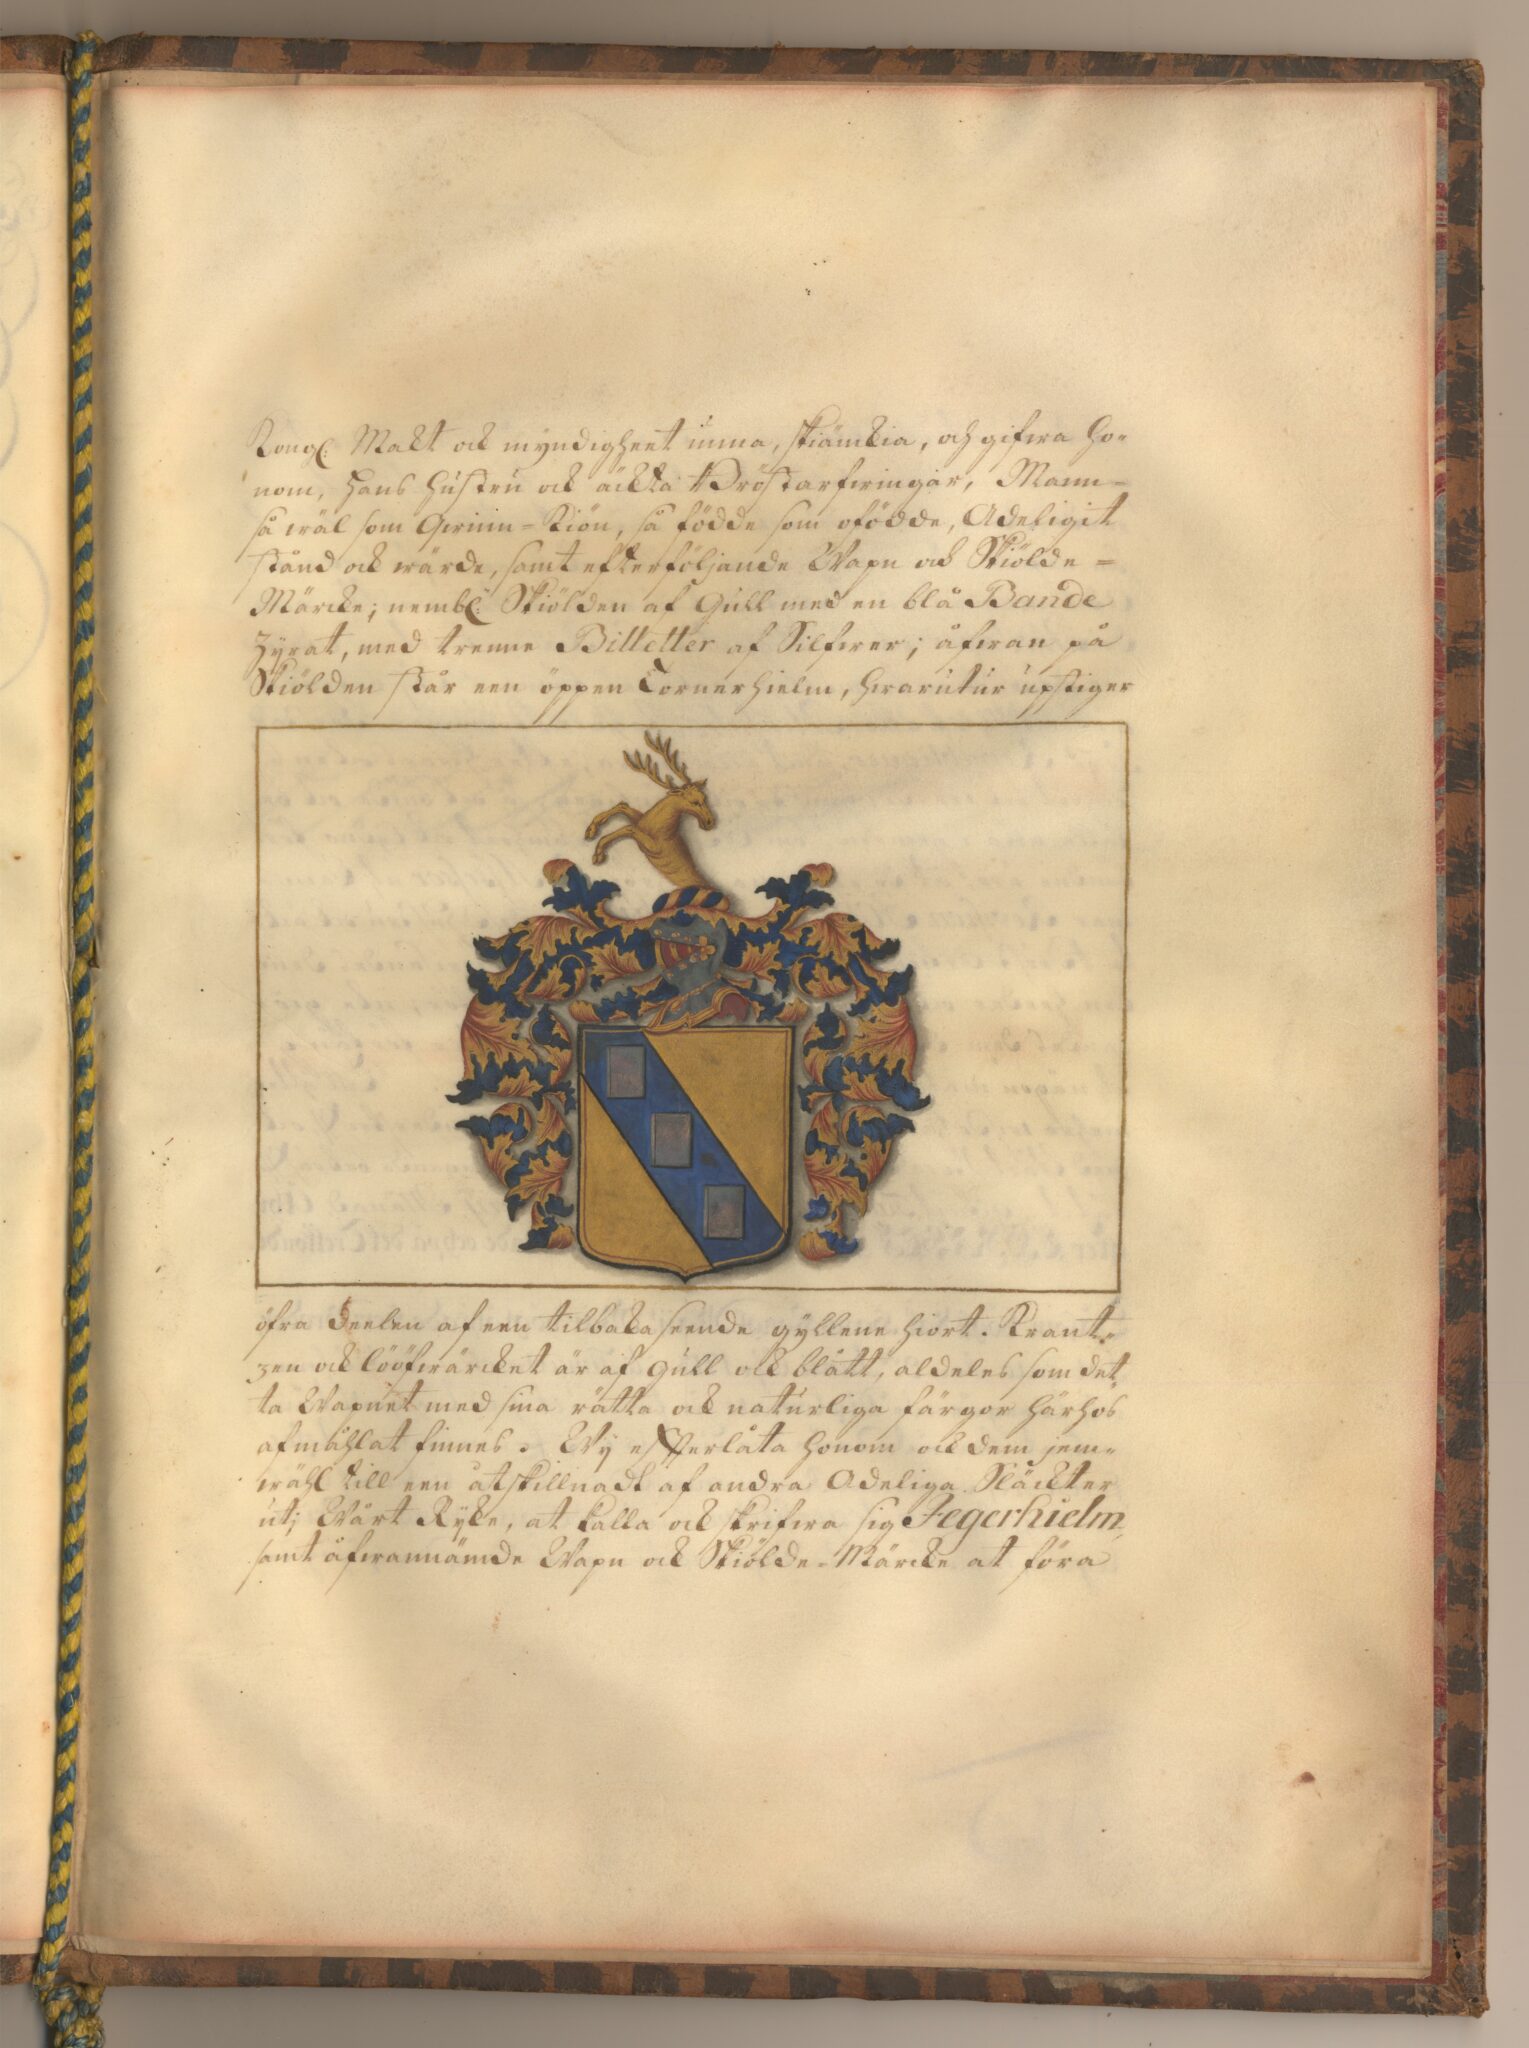 Kongl: Mackt och myndigheet unna, skiänckia, och gifwa ho-
nom, hans hustru och äckta Bröstarfwingar, Mann-
så wäl som Qwinn-Kiön, så födde som ofödde, Adeligit
stånd och wärde, samt efterföljande Wapn och Skiölde-
Märcke; nembl: Skiölden af Gull med en blå Bande
Zyrat, med trenne Billetter af Silfwer; åfwan på
Skiölden står een öppen Tornerhielm, hwarutur upstiger
öfra deelen af een tilbakaseende gyllene hiort. Krant-
zen och lööfwärcket är af Gull och blått, aldeles som det-
ta Wapnet med sina rätta och naturliga färgor härhos
afmåhlat finnes. Wy efterlåta honom och dem jem-
wähl till een åtskillnadt af andra Adeliga Släckter
uti Wårt Ryke, at kalla och skrifwa sig Jegerhielm,
samt åfwannämde Wapn och Skiölde-Märcke at föra